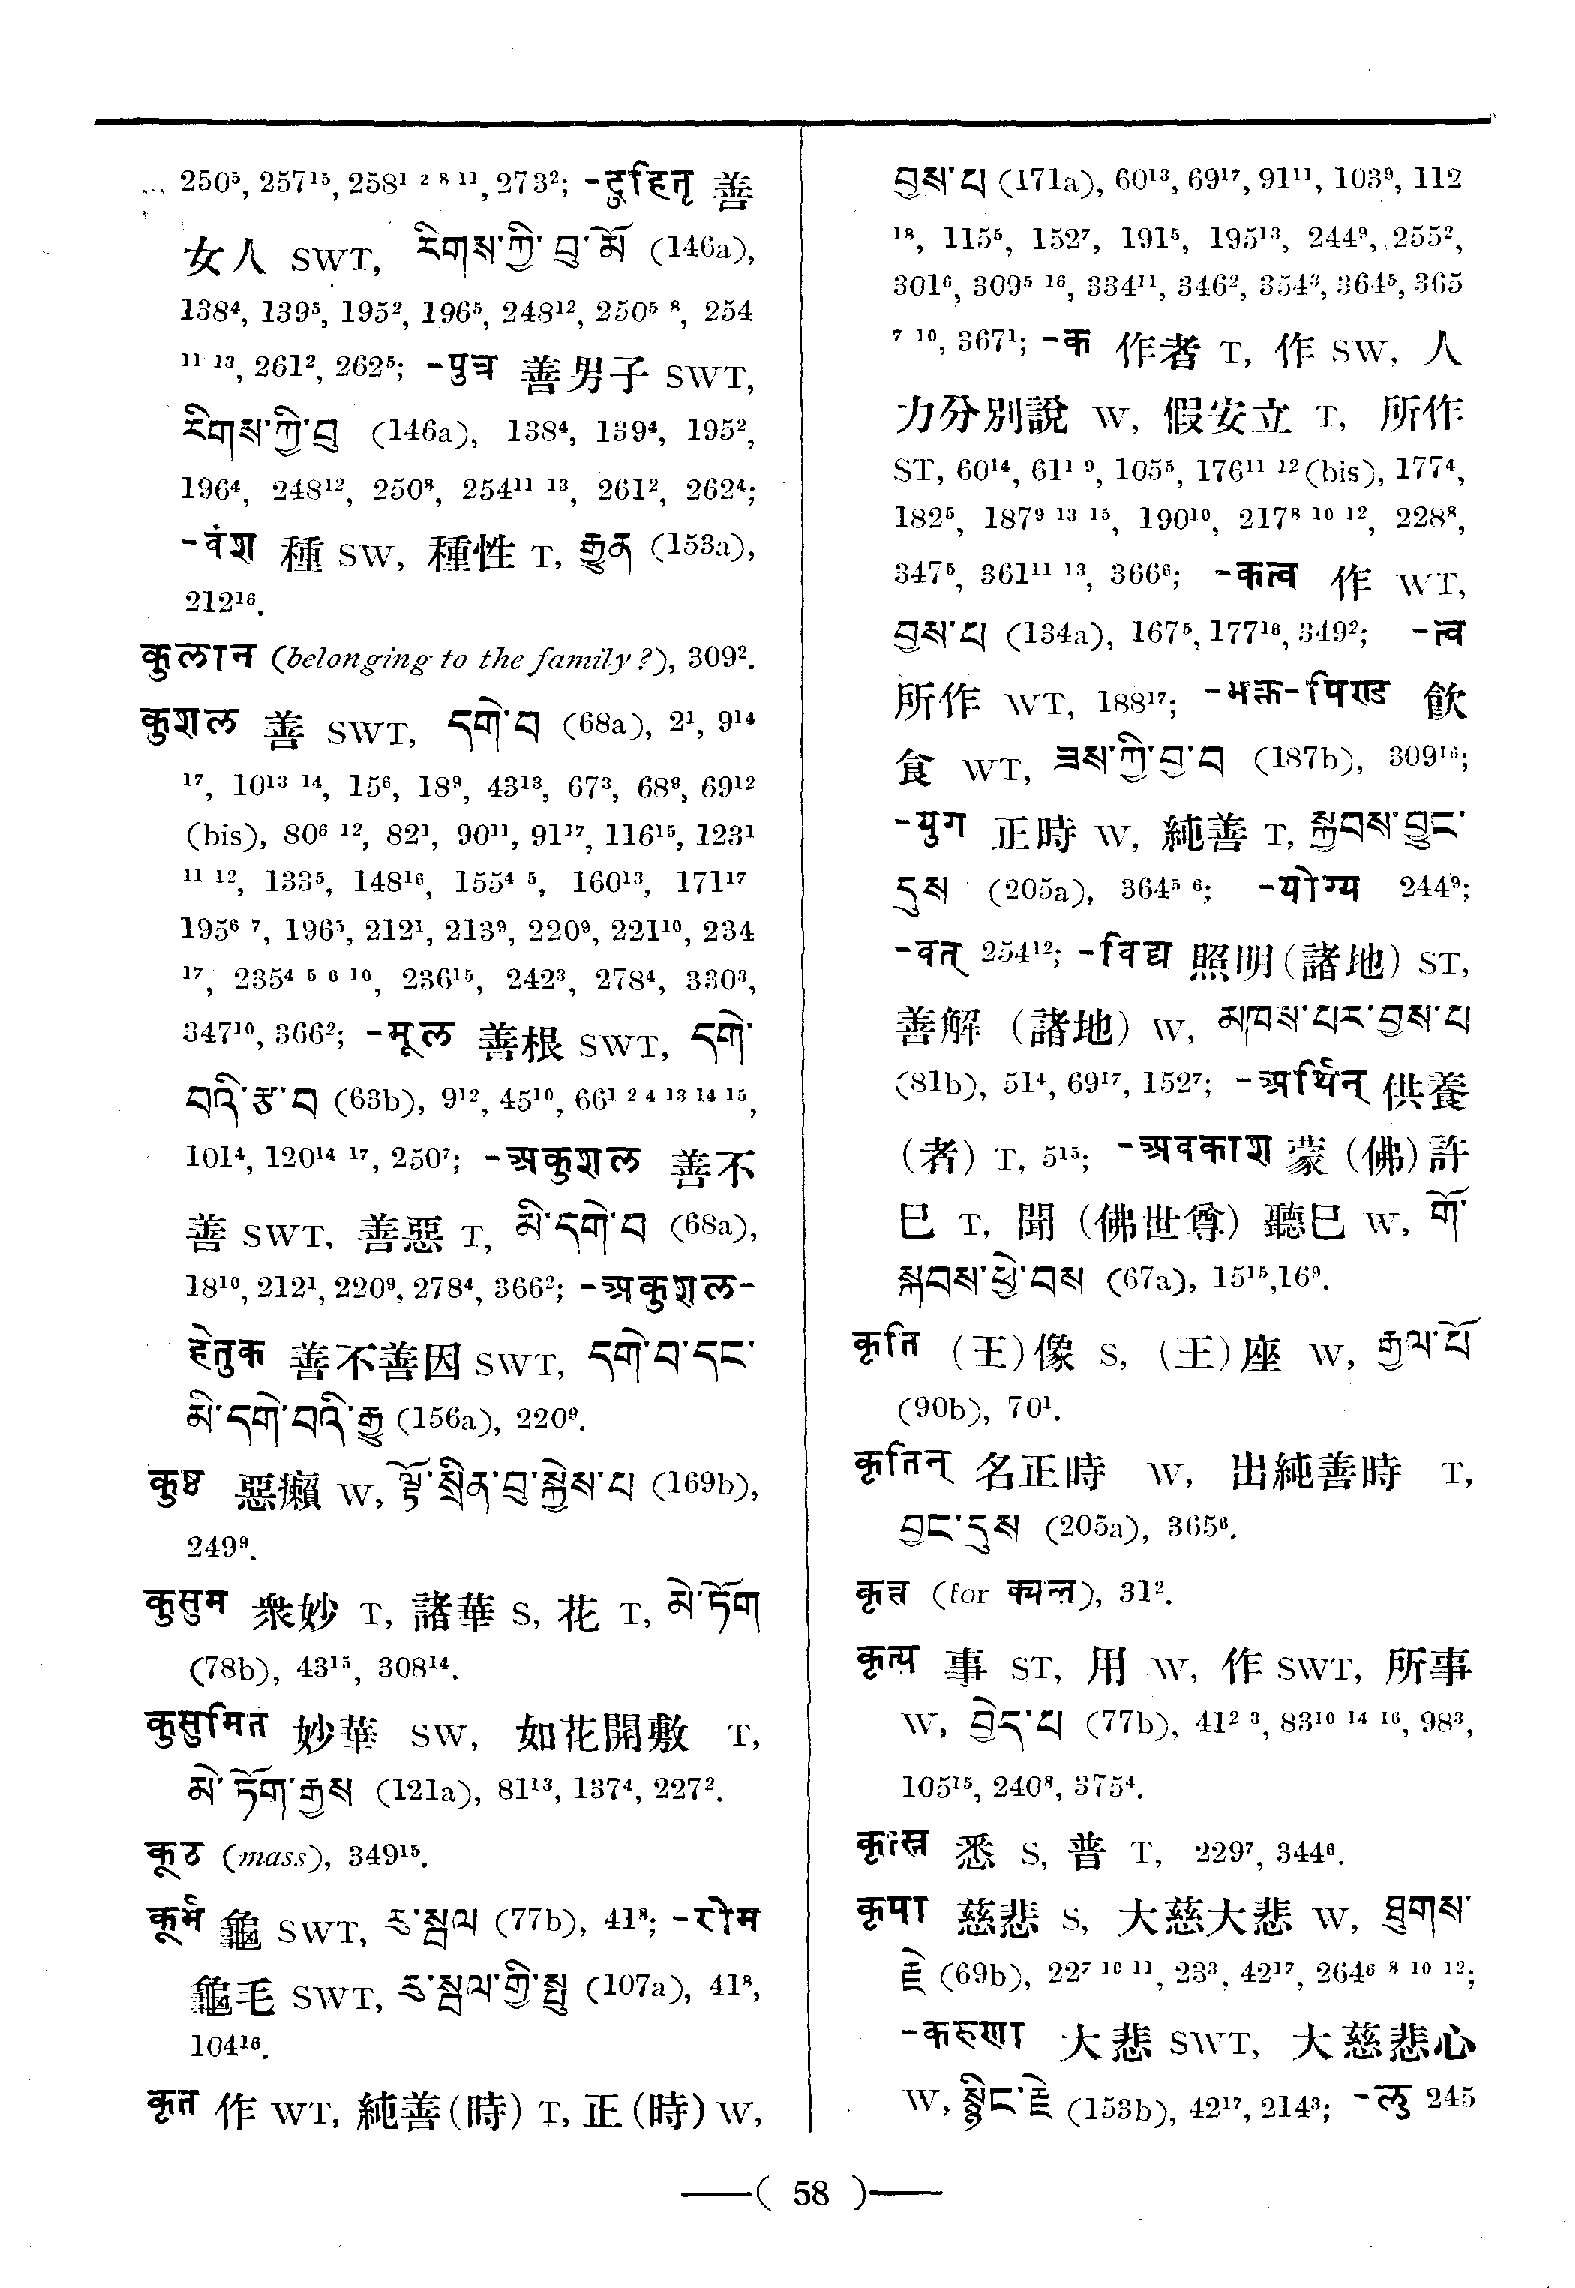 250⁵, 257¹⁵, 258¹ ² ⁸ ¹¹, 273²; -दुहितृ 善
女人 SWT, རིགས་ཀྱི་བུ་མོ (146a),
138⁴, 139⁵, 195², 196⁵, 248¹², 250⁵ ⁸, 254
¹¹ ¹³, 261², 262⁵; -पुत्र 善男子 SWT,
རིགས་ཀྱི་བུ (146a), 138⁴, 139⁴, 195²,
196⁴, 248¹², 250⁸, 254¹¹ ¹³, 261², 262⁴;
-वंश 種 SW, 種性 T, རྒྱུན (153a),
212¹⁶.
कुलान (belonging to the family ?), 309².
कुशल 善 SWT, དགེ་བ (68a), 2¹, 9¹⁴
¹⁷, 10¹³ ¹⁴, 15⁶, 18⁹, 43¹³, 67³, 68⁸, 69¹²
(bis), 80⁶ ¹², 82¹, 90¹¹, 91¹⁷, 116¹⁵, 123¹
¹¹ ¹², 133⁵, 148¹⁶, 155⁴ ⁵, 160¹³, 171¹⁷
195⁶ ⁷, 196⁵, 212¹, 213⁹, 220⁹, 221¹⁰, 234
¹⁷, 235⁴ ⁵ ⁶ ¹⁰, 236¹⁵, 242³, 278⁴, 330³,
347¹⁰, 366²; -मूल 善根 SWT, དགེ་
བའི་རྩ་བ (63b), 9¹², 45¹⁰, 66¹ ² ⁴ ¹³ ¹⁴ ¹⁵,
101⁴, 120¹⁴ ¹⁷, 250⁷; -अकुशल 善不
善 SWT, 善惡 T, མི་དགེ་བ (68a),
18¹⁰, 212¹, 220⁹, 278⁴, 366²; -अकुशल-
हेतुक 善不善因 SWT, དགེ་བ་དང་
མི་དགེ་བའི་རྒྱུ (156a), 220⁹.
कुष्ठ 惡癩 W, ལྟོ་སྲིན་བུ་སྐྱེས་པ (169b),
249⁹.
कुसुम 衆妙 T, 諸華 S, 花 T, མེ་ཏོག
(78b), 43¹⁵, 308¹⁴.
कुसुमित 妙華 SW, 如花開敷 T,
མེ་ཏོག་རྒྱས (121a), 81¹³, 137⁴, 227².
कूठ (mass), 349¹⁵.
कूर्म 龜 SWT, རུ་སྦལ (77b), 41⁸; -रोम
龜毛 SWT, རུ་སྦལ་གྱི་སྤུ (107a), 41⁸,
104¹⁶.
कृत 作 WT, 純善(時) T, 正(時) W,
བྱས་པ (171a), 60¹³, 69¹⁷, 91¹¹, 103⁹, 112
¹⁸, 115⁵, 152⁷, 191⁵, 195¹³, 244⁹, 255²,
301⁶, 309⁵ ¹⁶, 334¹¹, 346², 354³, 364⁵, 365
⁷ ¹⁰, 367¹; -क 作者 T, 作 SW, 人
力分別說 W, 假安立 T, 所作
ST, 60¹⁴, 61¹ ⁹, 105⁵, 176¹¹ ¹² (bis), 177⁴,
182⁵, 187⁹ ¹³ ¹⁵, 190¹⁰, 217⁸ ¹⁰ ¹², 228⁸,
347⁵, 361¹¹ ¹³, 366⁶; -कत्व 作 WT,
བྱས་པ (134a), 167⁵, 177¹⁶, 349²; -त्व
所作 WT, 188¹⁷; -भक्त-पिण्ड 飮
食 WT, ཟས་ཀྱི་བྱ་བ (187b), 309¹⁶;
-युग 正時 W, 純善 T, སྐྱབས་བྱུང་
དུས (205a), 364⁵ ⁶; -योग्य 244⁹;
-वत् 254¹²; -विद्य 照明(諸地) ST,
善解 (諸地) W, མཁས་པར་བྱས་པ
(81b), 51⁴, 69¹⁷, 152⁷; -अर्थिन् 供養
(者) T, 5¹⁵; -अवकाश 蒙 (佛)許
巳 T, 聞 (佛世尊) 聽巳 W, གོ་
སྐབས་ཕྱེ་བས (67a), 15¹⁵,16⁹.
कृति (王)像 S, (王)座 W, རྒྱལ་པོ
(90b), 70¹.
कृतिन् 名正時 W, 出純善時 T,
བྱང་དུས (205a), 365⁶.
कृत्त (for क्यन्त), 31².
कृत्य 事 ST, 用 W, 作 SWT, 所事
W, བྱེད་པ (77b), 41² ³, 83¹⁰ ¹⁴ ¹⁶, 98³,
105¹⁵, 240⁸, 375⁴.
कृत्स्न 悉 S, 普 T, 229⁷, 344⁶.
कृपा 慈悲 S, 大慈大悲 W, ཐུགས་
རྗེ (69b), 22⁷ ¹⁰ ¹¹, 23³, 42¹⁷, 264⁶ ⁸ ¹⁰ ¹²;
-करुणा 大悲 SWT, 大慈悲心
W, སྙིང་རྗེ (153b), 42¹⁷, 214³; -लु 245
( 58 )